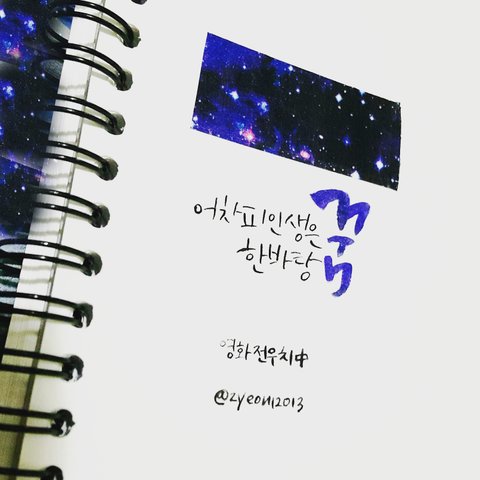 어차피 인생은
한바탕 꿈
영화 전우치 中
@zyeoni2013